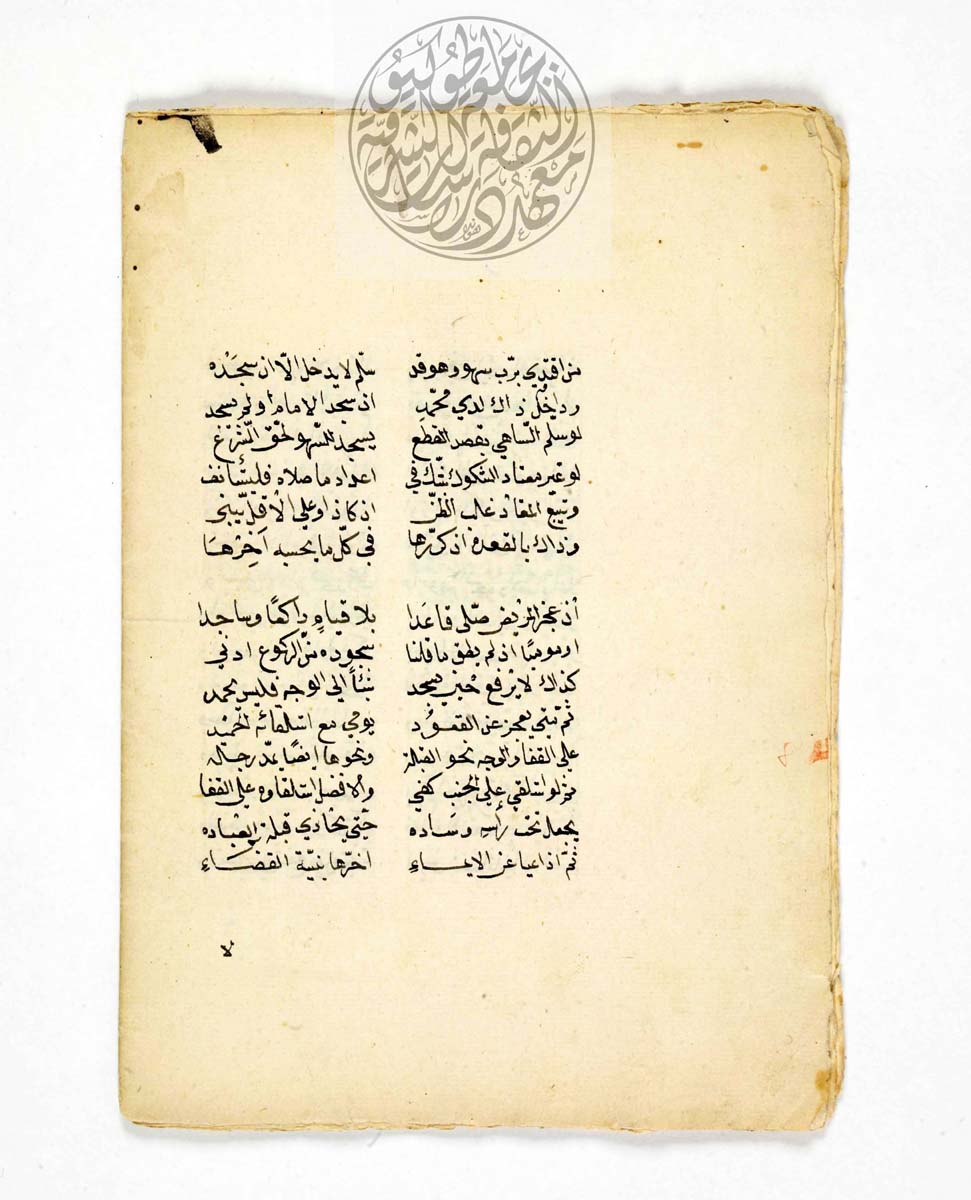 من اقتدي برب سهو وهو قد سلم لا يدخل الّا ان سجَدْه
وداخلٌ ذاك لدي محمّدِ ان سجد الامام او لم يسجد
لو سلم السّاهي بقصد القطع يسجد للسّهو لحق الشّرْع
لو غير معتاد الشكوك شك في اعداد ما صلاه فليستأنف
وتبع المعتاد غلب الظنّ ان كان ذا وعلي الاقل يبني
وذاك بالقعدة اذ كرّرها في كلّ ما يحسبه آخرها
اذ عجز المريض صلّي قاعَدا بلا قيامٍ راكعًا وساجدا
او موميًا اذ لم يطق ما قلنا سجوده من الركوع ادني
كذاك لا يرفع حين يسجد شيئاً الي الوجه فليس يحمد
ثم متي يعجز عن القعود يومي مع استلقائه
علي القفا والوجه نحو القبلة ونحوها ايضًا يمدّ رجله
نعم لو استلقي علي الجنب كفي والافضل استلقاوه علي القفا
يجعل تحت رأسه وسَاده حتي يحاذي قبلة العباده
ثمّ اذا عيا عن الايماءِ اخرّها بنيّة القضاءِ
لا